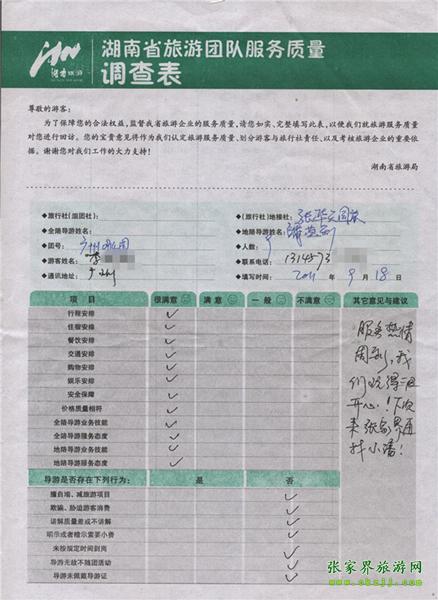 湖南旅游
湖南省旅游团队服务质量
调查表
尊敬的游客:
为了保障您的合法权益,监督我省旅游企业的服务质量,请您如实、完整填写此表,以便我们就旅游服务质量
对您进行回访。您的宝贵意见将作为我们认定旅游服务质量、划分游客与旅行社责任、以及考核旅游企业的重要依
据。谢谢您对我们工作的大力支持!
湖南省旅游局
◆旅行社(组团社): ◆(旅行社)地接社:张家
◆全陪导游姓名: ◆地陪导游姓名:
◆团号:广州 ◆人数:9
◆游客姓名:李 ◆联系电话:1314573
◆通讯地址:广州 ◆填写时间:2011年9月18日
项目 很满意 满意 一般 不满意 其它意见与建议
行程安排
住宿安排
餐饮安排
交通安排
购物安排
娱乐安排
安全保障
价格质量相符
全陪导游业务技能
全陪导游服务态度
地陪导游业务技能
地陪导游服务态度
服务热情
周到,我
们玩得很
开心!下次
来张家界再
找小潘!
导游是否存在下列行为: 是 否
擅自增、减旅游项目
欺骗、胁迫游客消费
讲解质量差或不讲解
明示或者暗示索要小费
未按规定时间到岗
导游无故不随团活动
导游未佩戴导游证
张家界旅游网
www.okzjj.com